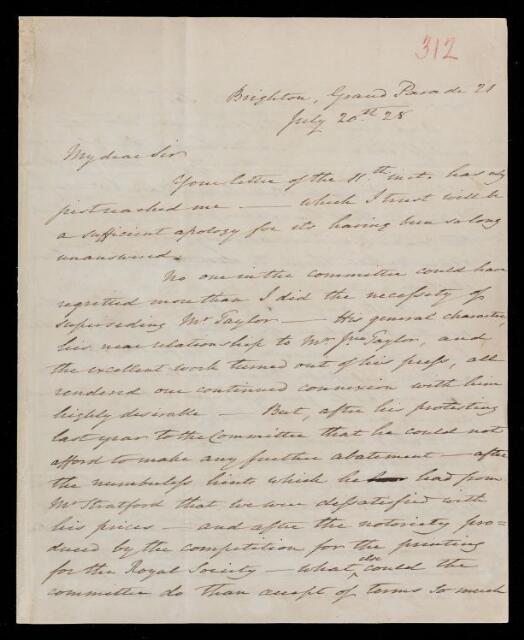 312
Brighton, Grand Parade 21
July 20st 28
My dear Sir
Your letter of the 11th inst. has only
just reached me — which I trust will be
a sufficient apology for its having been so long
unanswered.
No one in the committee could have
regretted more than I did the necessity of
superseding Mr Taylor — His general character,
his near relationship to Mr Jno Taylor, and
the excellent work turned out of his press, all
rendered our continued connexion with him
highly desirable — But, after his protesting
last year to the Committee that he could not
afford to make any further abatement — after
the numberless hints which he had from
Mr Stratford that we were dissatisfied with
his prices — and after the notoriety pro-
duced by the competition for the printing
for the Royal Society — what else could the
committee do than accept of terms so much